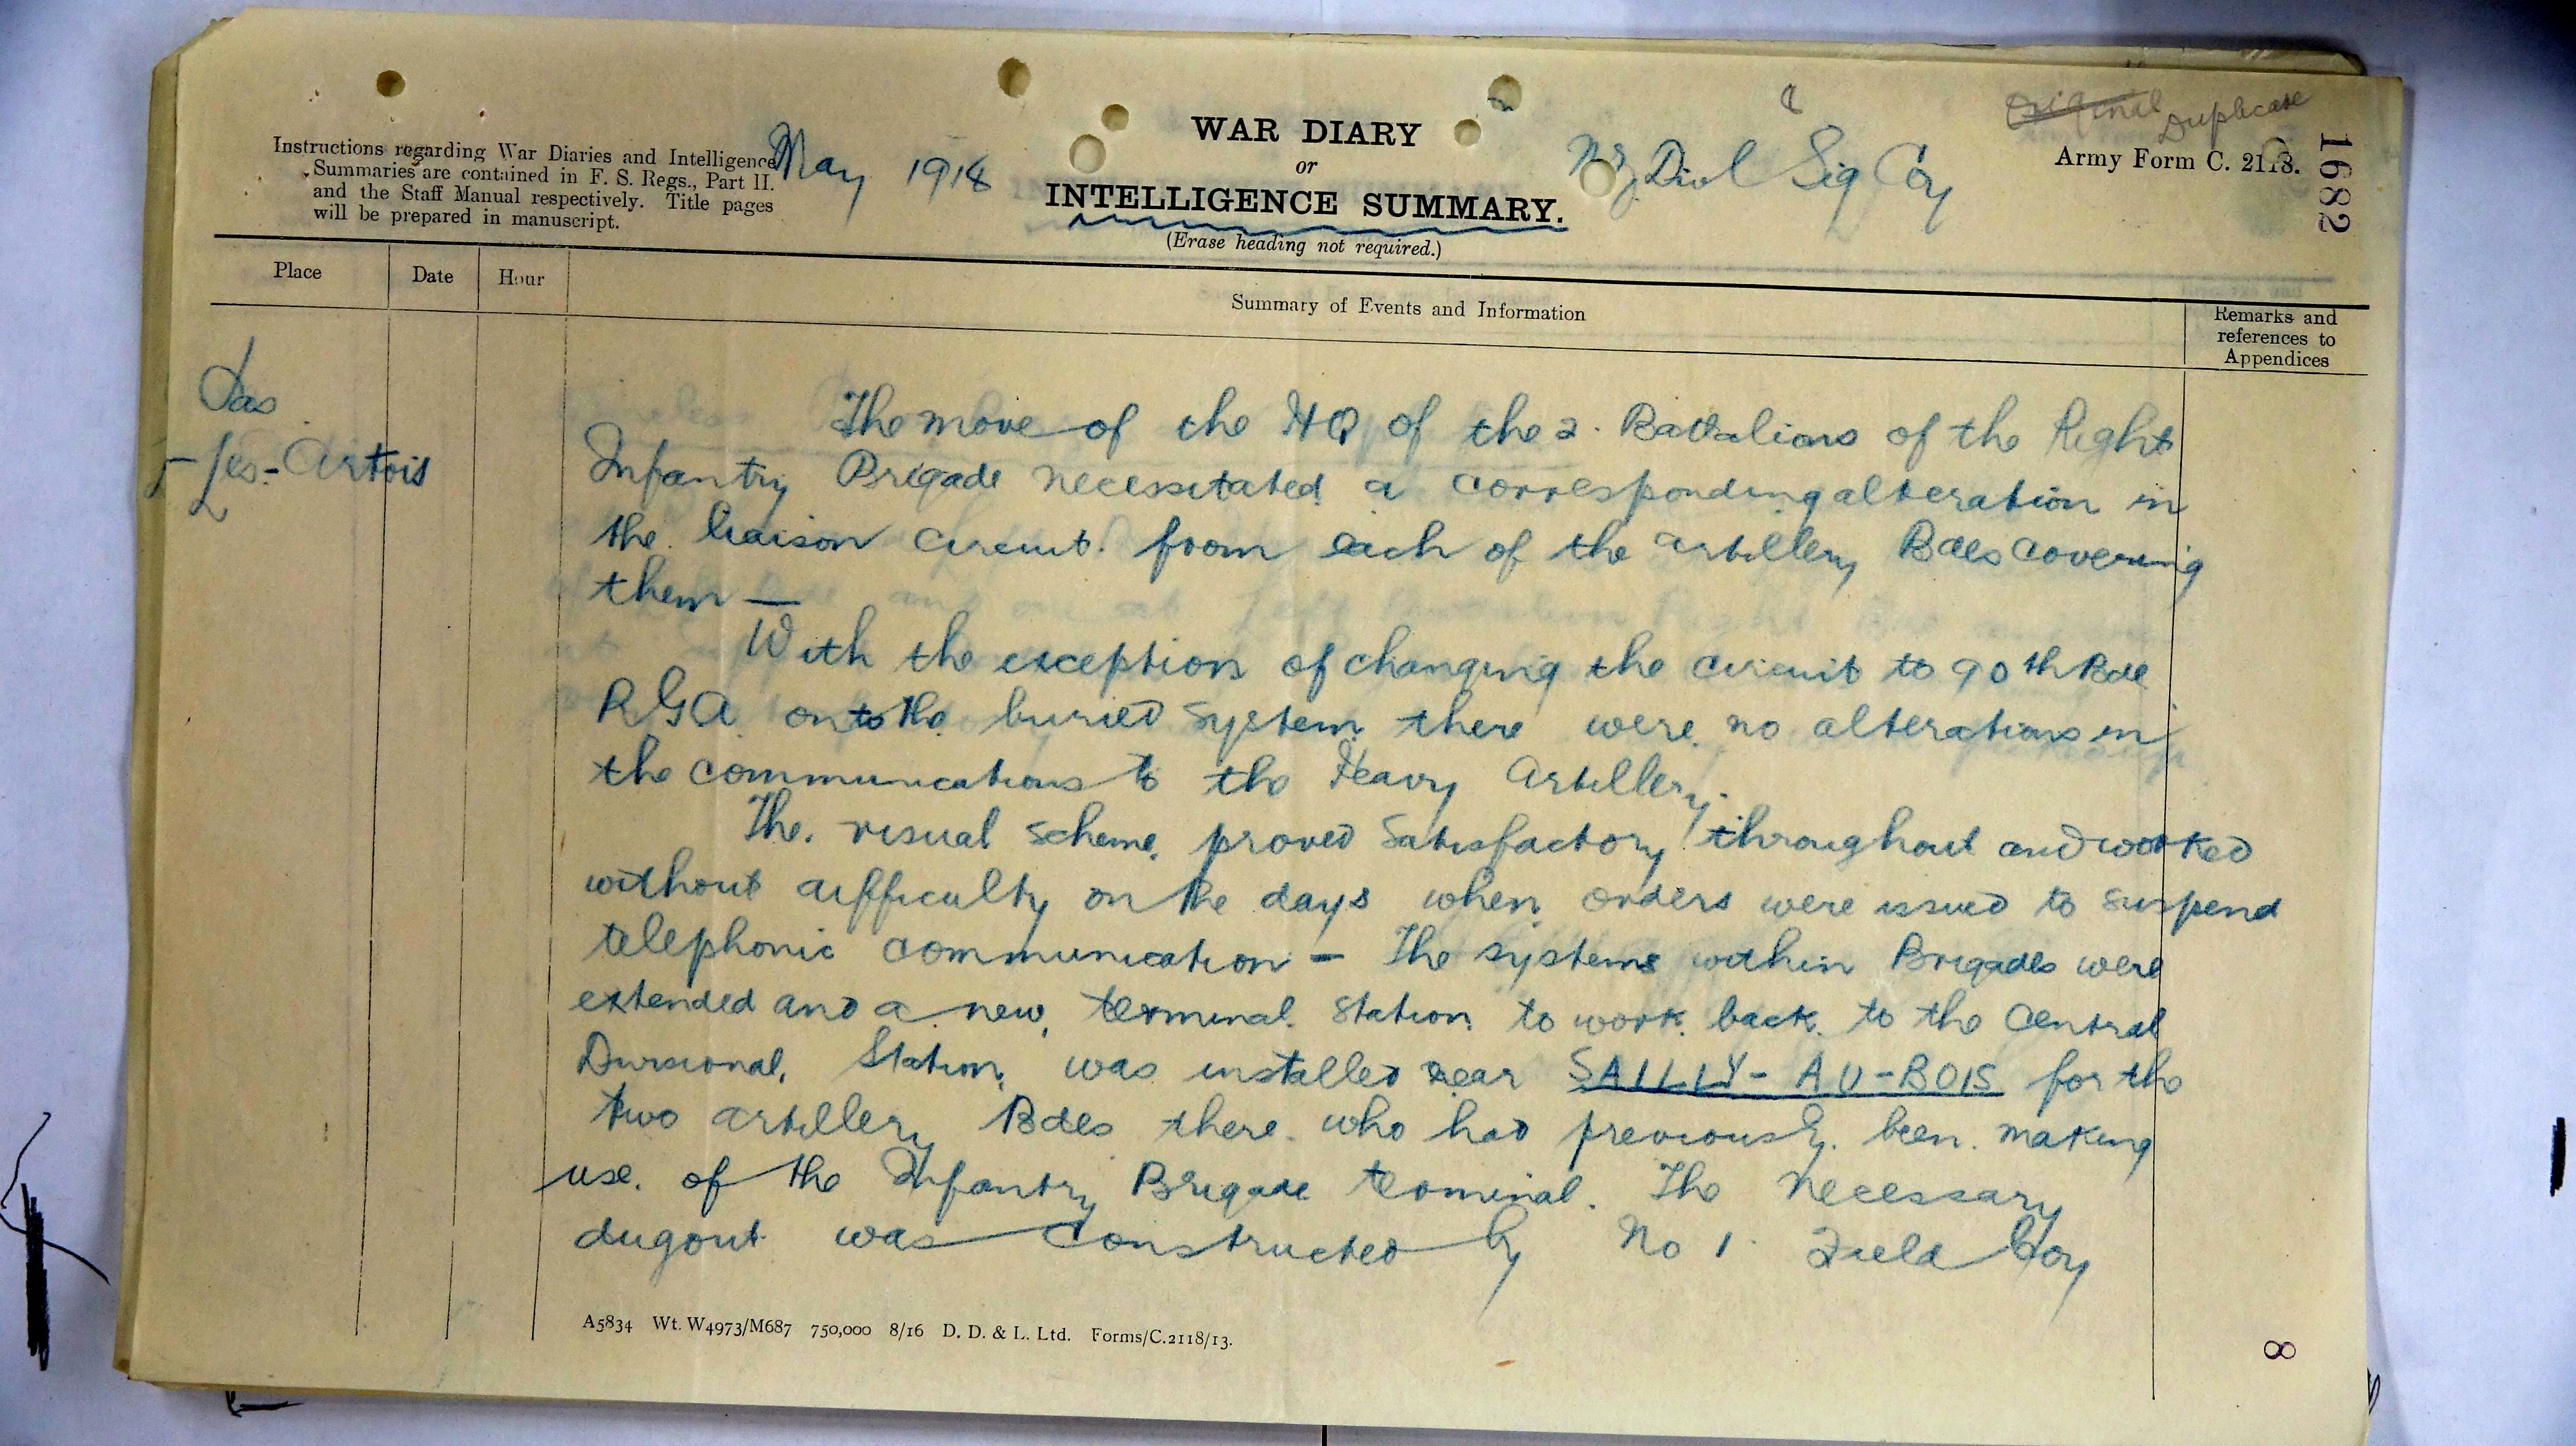 8
Original Duplicate
Instructions regarding War Diaries and Intelligence
Summaries are contained in F. S. Regs., Part II.
and the Staff Manual respectively. Title pages
will be prepared in manuscript.
May 1918
WAR DIARY
or
INTELLIGENCE SUMMARY.
(Erase heading not required.)
NZ Divl Sig Coy
Army Form C. 2118.
1682
Place
Date
Hour
Summary of Events and Information
Remarks and
references to
Appendices
Pas
-les-Artois
The move of the HQ of the 2 Battalions of the Right
Infantry Brigade necessitated a corresponding alteration in
the liaison circuit from each of the artillery Bdes covering
them —
With the exception of changing the circuit to 90th Bde
RGA onto the buried system there were no alterations in
the communications to the Heavy Artillery.
The visual scheme proved satisfactory throughout and worked
without difficulty on the days when orders were issued to suspend
telephonic communication - The systems within Brigades were
extended and a new terminal station to work back to the Central
Divisional Station was installed near SAILLY-AU-BOIS for the
two artillery Bdes there who had previously been making
use of the Infantry Brigade terminal. The necessary
dugout was constructed by No 1 Field Coy
A5834 Wt. W4973/M687 750,000 8/16 D. D. & L. Ltd. Forms/C.2118/13.
8